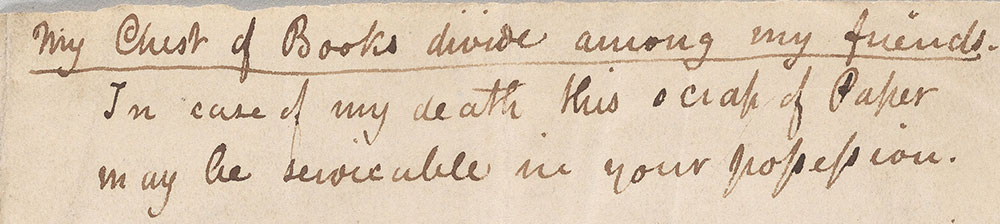 My Chest of Books divide among my friends—
In case of my death this scrap of Paper
may be servicable in your possession.